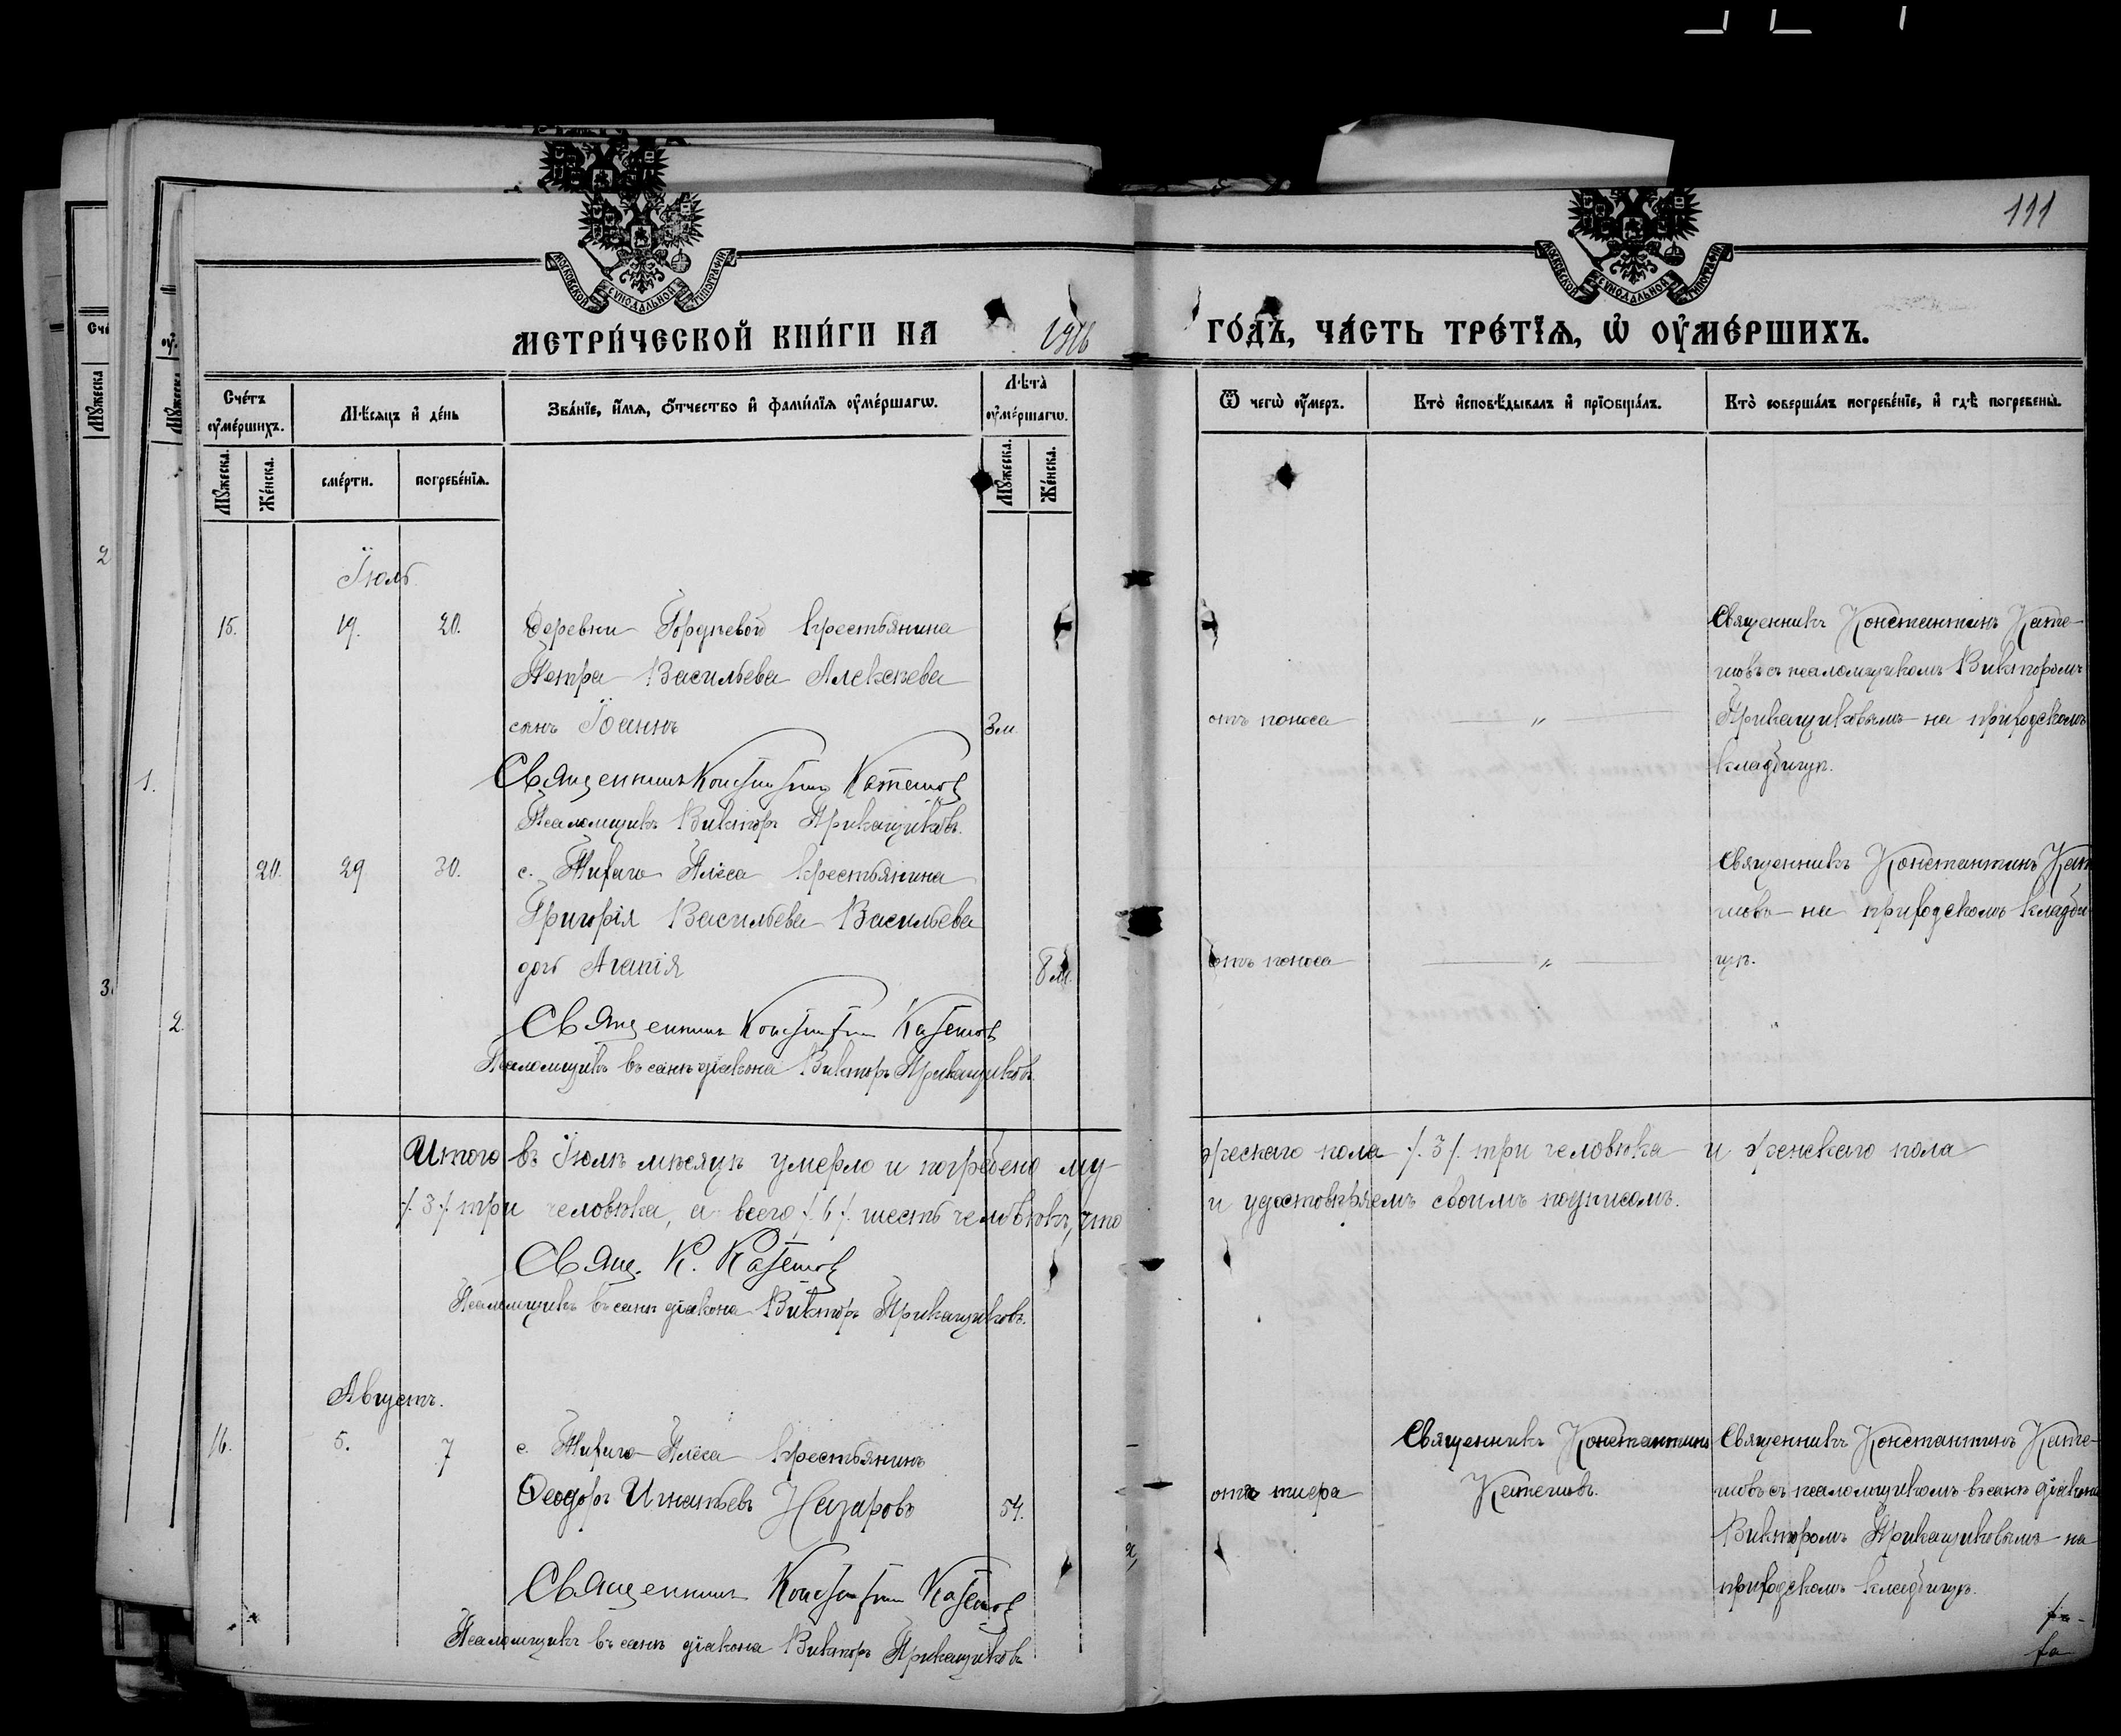 111
МОСКОВСКОЙ СѴНОДАЛЬНОЙ ТИПОГРАФІИ
МОСКОВСКОЙ СѴНОДАЛЬНОЙ ТИПОГРАФІИ
МЕТРИ́ЧЕСКОЙ КНИ́ГИ НА 1916 ГО́ДЪ, ЧА́СТЬ ТРЕ́ТЇѦ, Ѡ҆ ОУ҆МЕ́РШИХЪ.
Сче́тъ оу҆ме́ршихъ.
Мꙋ́жеска.
Же́нска.
Мѣ́сяцъ и҆ де́нь
сме́рти.
погребе́нїѧ.
Зва́нїе, и҆́мѧ, ѻ҆́тчество и҆ фами́лїѧ оу҆ме́ршагѡ.
Лѣ́та оу҆ме́ршагѡ.
Мꙋ́жеска.
Же́нска.
Ѿ чегѡ̀ оу҆́меръ.
Кто̀ и҆сповѣ́дывалъ и҆ прїѡбща́лъ.
Кто̀ соверша́лъ погребе́нїе, и҆ гдѣ̀ погребены̀.
Іюль
15. 19. 20. Деревни Гордѣевой крестьянина
Петра Васильева Алексѣева
сынъ Іоаннъ 3 м. отъ поноса — „ —
Священникъ Константинъ Кате-
шовъ съ псаломщикомъ Викторомъ
Прикащиковымъ на приходскомъ
кладбищѣ.
Священникъ Константинъ Катешов
Псаломщикъ Викторъ Прикащиковъ.
20. 29 30. с. Тихаго Плёса крестьянина
Григорія Васильева Васильева
дочь Агапія 8 м. отъ поноса — „ —
Священникъ Константинъ Кате
шовъ на приходскомъ кладби-
щѣ.
Священникъ Константин Катешов
Псаломщикъ въ санѣ діакона Викторъ Прикащиковъ.
Итого въ Іюлѣ мѣсяцѣ умерло и погребено му-
жескаго пола /.3/. три человѣка и женскаго пола
/.3/. три человѣка, а всего /.6/. шесть человѣкъ, что
и удостовѣряемъ своимъ подписомъ.
Свящ. К. Катешов
Псаломщикъ въ санѣ діакона Викторъ Прикащиковъ.
Августъ.
16. 5. 7 с. Тихаго Плёса крестьянинъ
Ѳеодоръ Игнатьевъ Назаровъ 54. отъ тиѳа
Священникъ Константинъ
Катешовъ.
Священникъ Константинъ Кате-
шовъ съ псаломщикомъ въ санѣ діакона
Викторомъ Прикащиковымъ на
приходскомъ кладбищѣ.
Священникъ Константин Катешов
Псаломщикъ въ санѣ діакона Викторъ Прикащиковъ